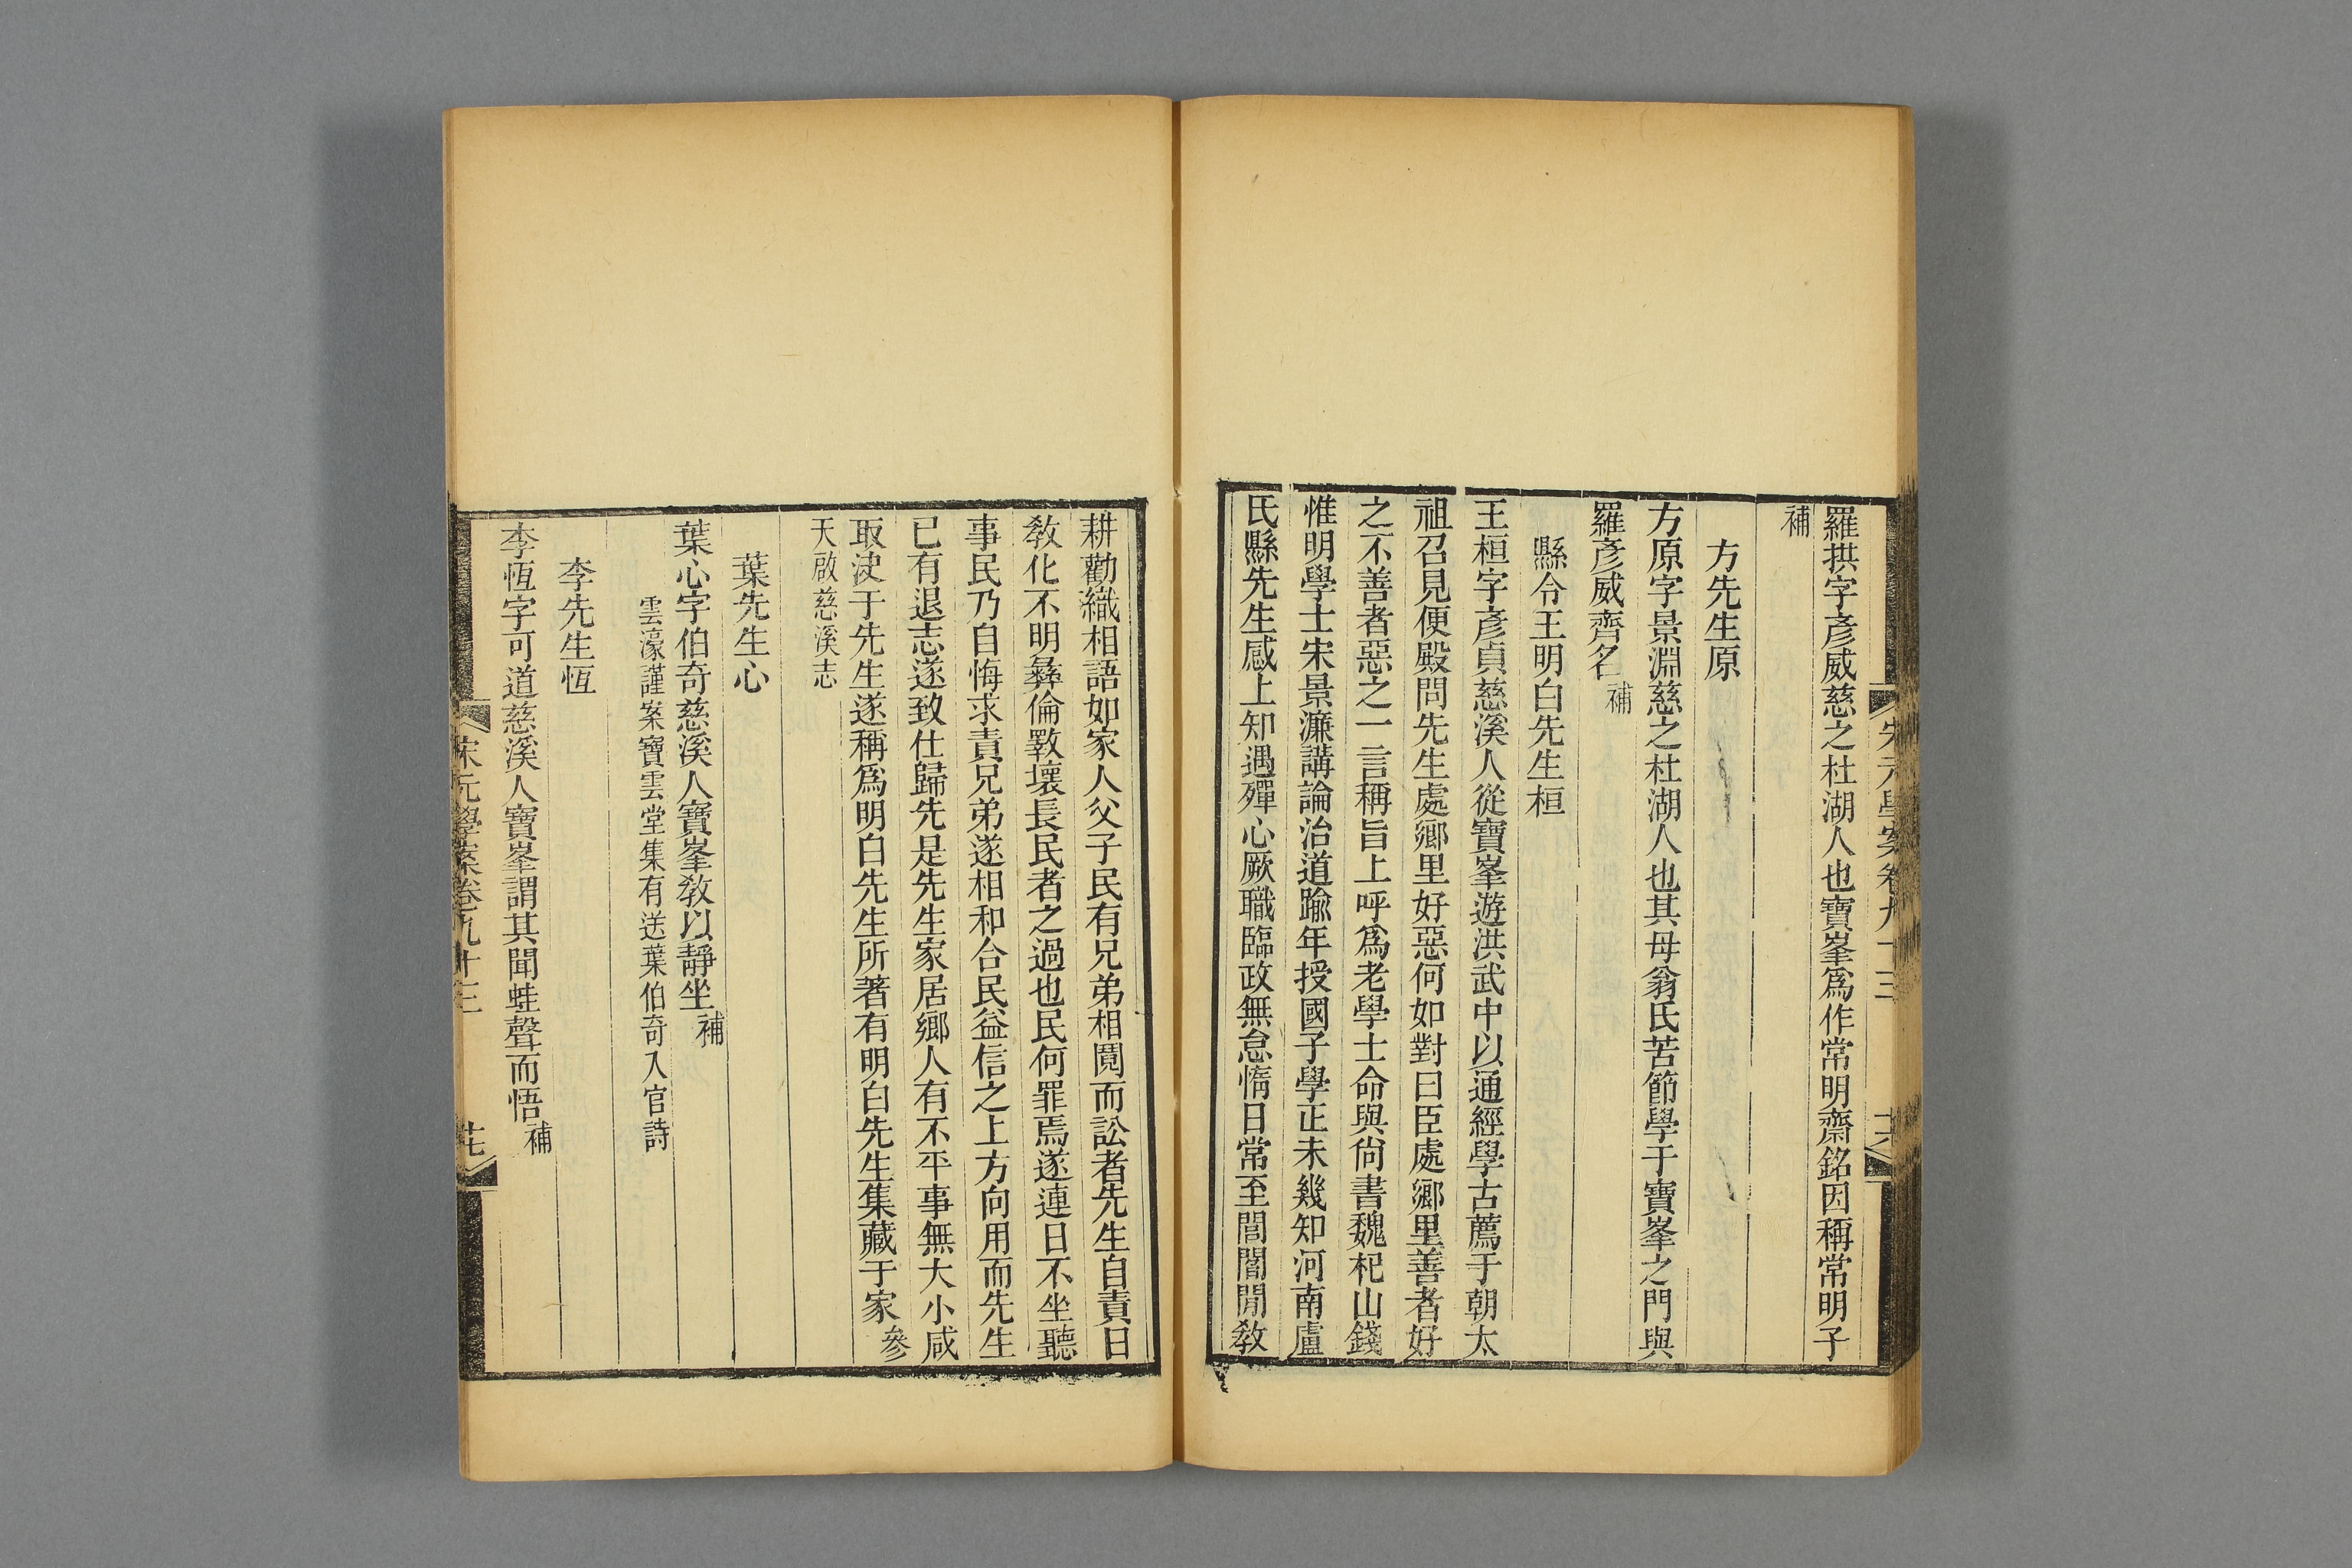 宋元學案卷九十三
六
羅拱字彥威慈之杜湖人也寶峯爲作常明齋銘因稱常明子
補
方先生原
方原字景淵慈之杜湖人也其母翁氏苦節學于寶峯之門與
羅彥威齊名補
縣令王明白先生桓
王桓字彥貞慈溪人從寶峯遊洪武中以通經學古薦于朝太
祖召見便殿問先生處鄉里好惡何如對曰臣處鄉里善者好
之不善者惡之一言稱旨上呼爲老學士命與尙書魏杞山錢
惟明學士宋景濂講論治道踰年授國子學正未幾知河南盧
氏縣先生感上知遇殫心厥職臨政無怠惰日常至閭閻閒敎
耕勸織相語如家人父子民有兄弟相鬩而訟者先生自責曰
敎化不明彝倫斁壞長民者之過也民何罪焉遂連日不坐聽
事民乃自悔求責兄弟遂相和合民益信之上方向用而先生
已有退志遂致仕歸先是先生家居鄉人有不平事無大小咸
取決于先生遂稱爲明白先生所著有明白先生集藏于家參
天啟慈溪志
葉先生心
葉心字伯奇慈溪人寶峯敎以靜坐補
雲濠謹案寶雲堂集有送葉伯奇入官詩
李先生恆
李恆字可道慈溪人寶峯謂其聞蛙聲而悟補
宋元學案卷九十三